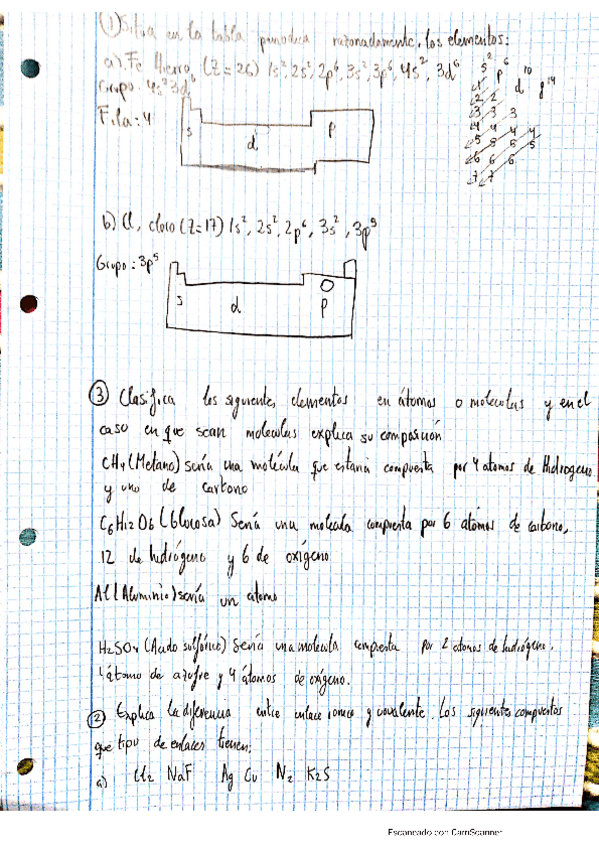 ① Sitúa en la tabla periódica razonadamente, los elementos:
a) Fe Hierro (Z=26) 1s², 2s², 2p⁶, 3s², 3p⁶, 4s², 3d⁶
Grupo: 4s² 3d⁶
Fila: 4
s d p
s² p⁶ d¹⁰
1
2 2
3 3 3
4 4 4 4
5 5 5 5
6 6 6
7 7
b) Cl, cloro (Z=17) 1s², 2s², 2p⁶, 3s², 3p⁵
Grupo: 3p⁵
s d p
③ Clasifica los siguientes elementos en átomos o moléculas y en el
caso en que sean moléculas explica su composición
CH4 (Metano) sería una molécula que estaría compuesta por 4 átomos de Hidrogeno
y uno de carbono
C6H12O6 (Glucosa) Sería una molécula compuesta por 6 átomos de carbono,
12 de hidrógeno y 6 de oxígeno
Al (Aluminio) sería un átomo
H2SO4 (Ácido sulfúrico) Sería una molécula compuesta por 2 átomos de hidrógeno,
1 átomo de azufre y 4 átomos de oxígeno.
② Explica la diferencia entre enlace iónico y covalente. Los siguientes compuestos
que tipo de enlaces tienen:
a) Cl2 NaF Ag Cu N2 K2S
Escaneado con CamScanner